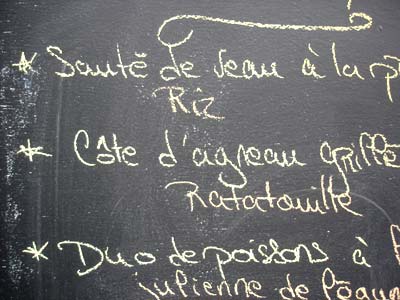 * Sauté de veau à la p
Riz
* Côte d'agneau grillé
Ratatouille
* Duo de poissons à
julienne de légum